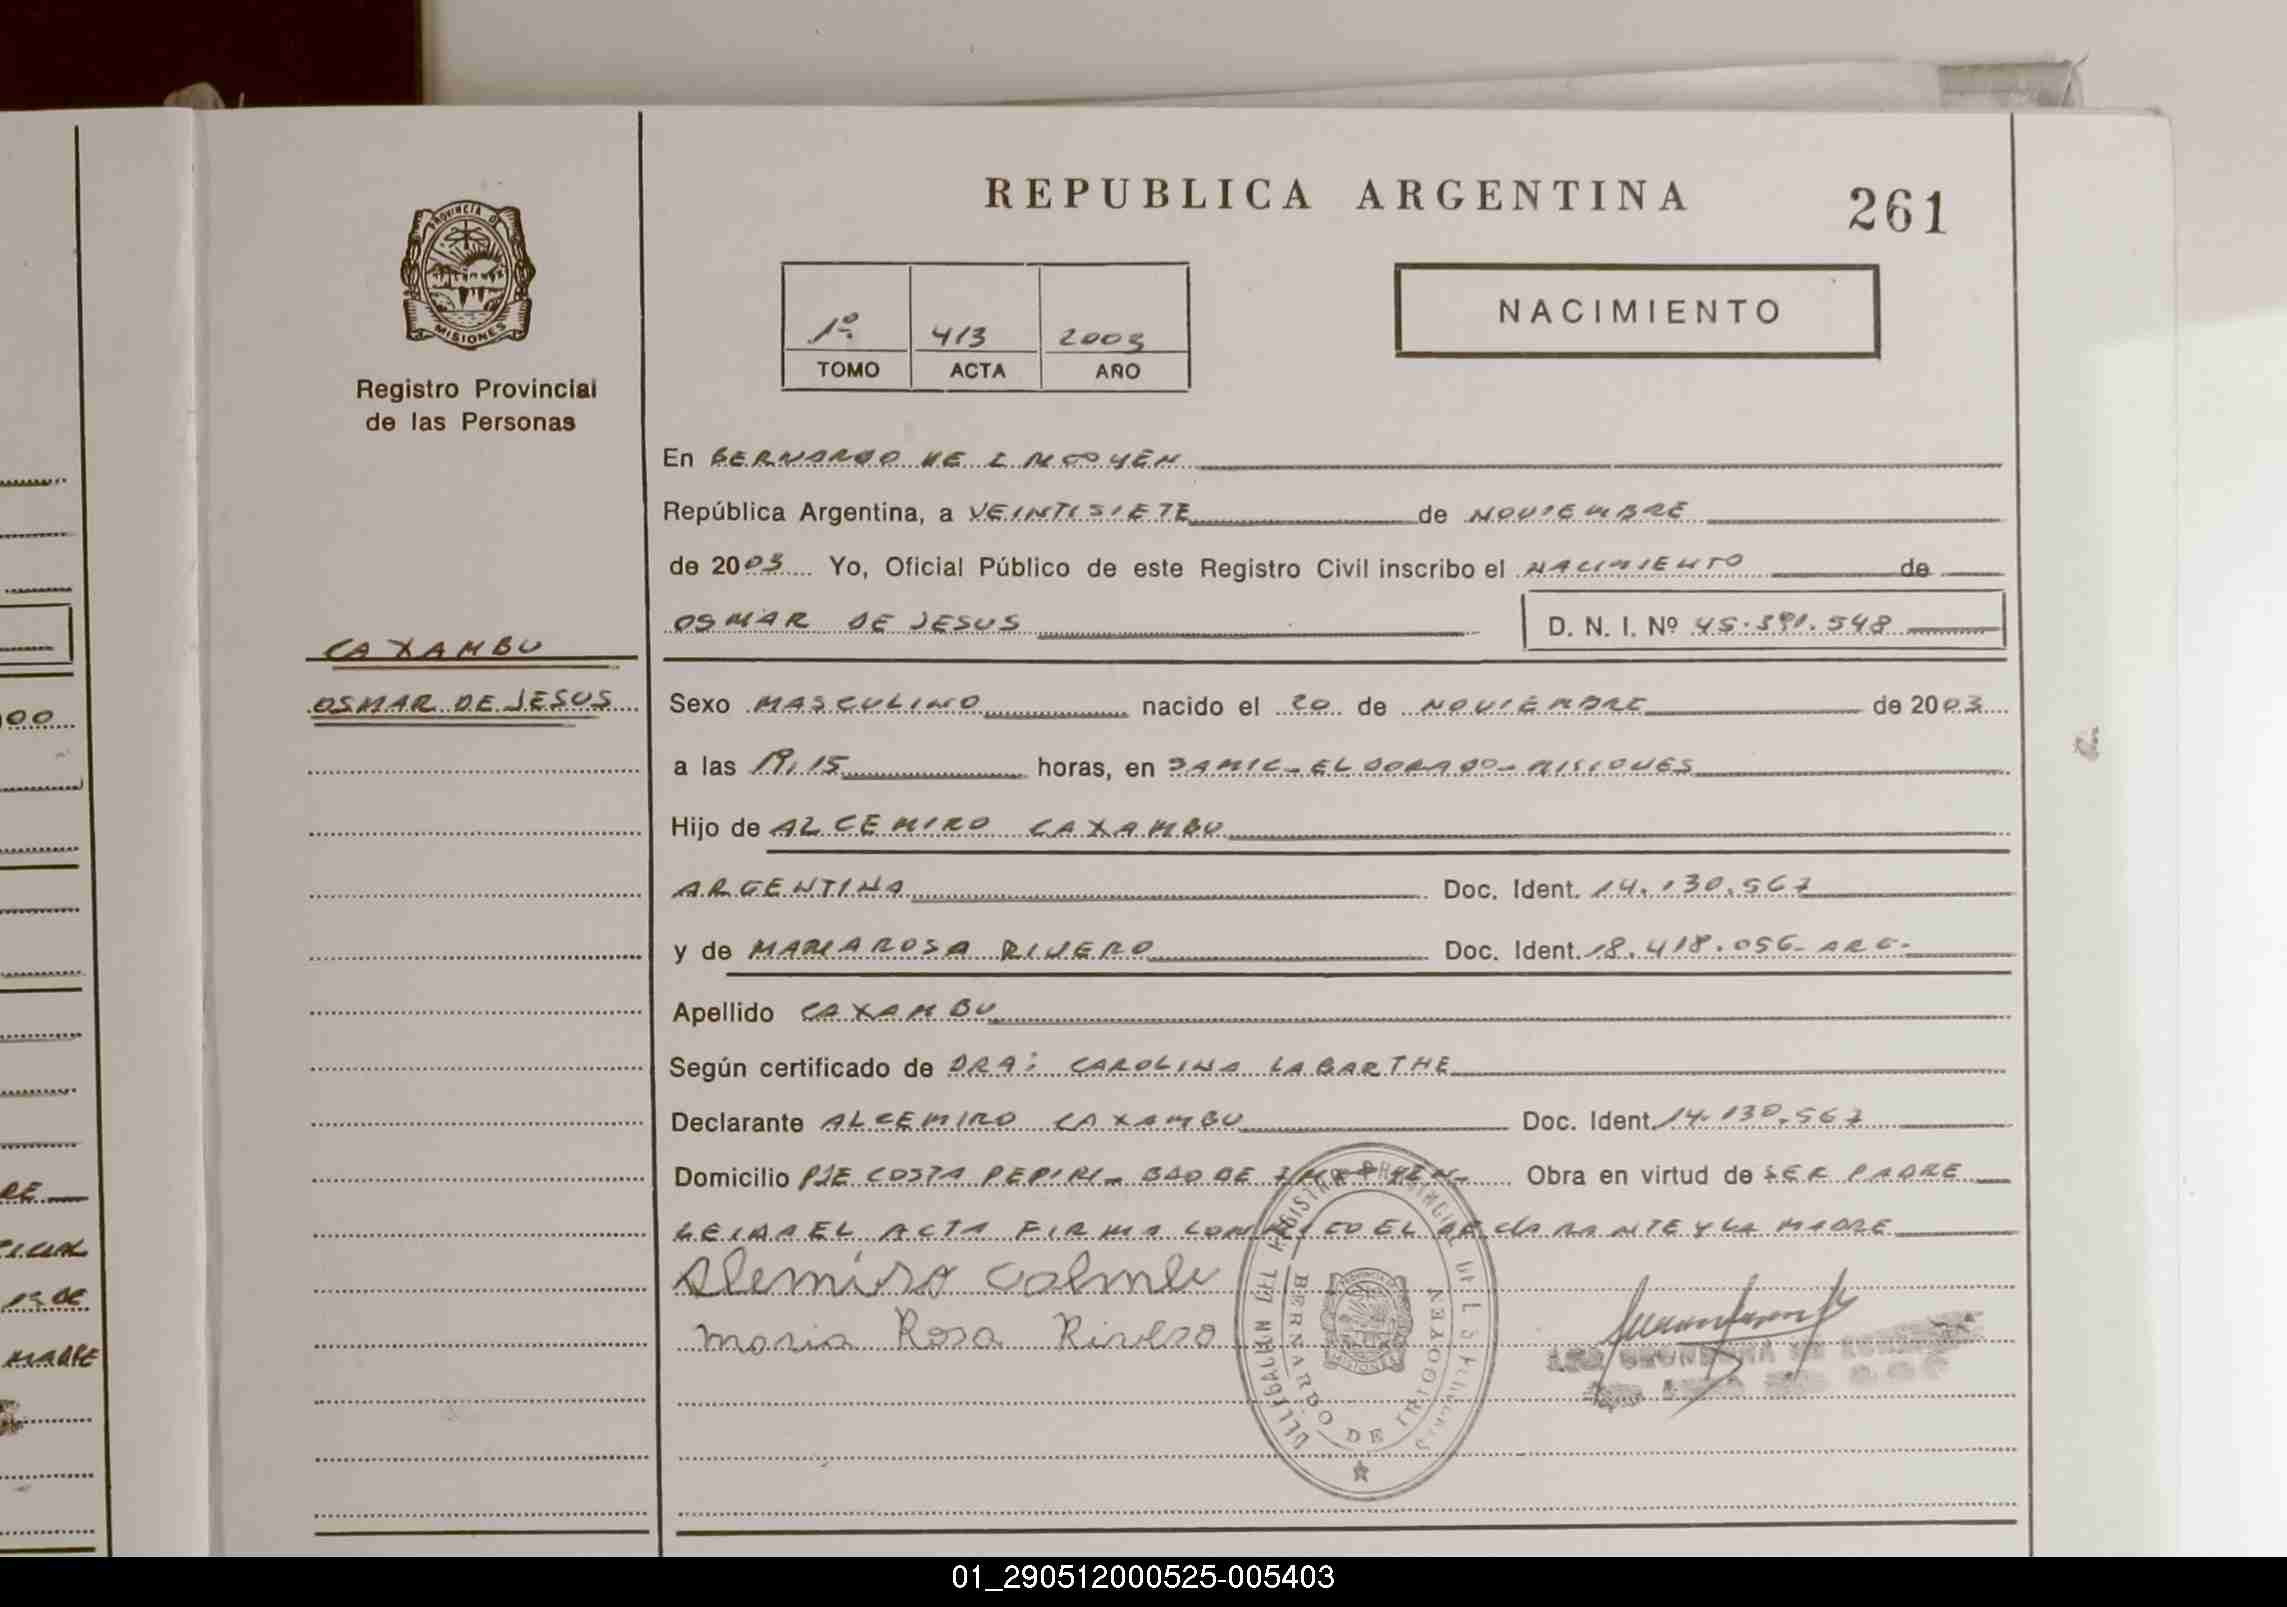 REPUBLICA ARGENTINA
261
PROVINCIA DE
MISIONES
Registro Provincial
de las Personas
1º 413 2003
TOMO ACTA AÑO
NACIMIENTO
En BERNARDO DE IRIGOYEN
República Argentina, a VEINTISIETE de NOVIEMBRE
de 2003 Yo, Oficial Público de este Registro Civil inscribo el NACIMIENTO de
OSMAR DE JESUS D. N. I. Nº 45.391.548
CAXAMBU
OSMAR DE JESUS
Sexo MASCULINO nacido el 20 de NOVIEMBRE de 2003
a las 19,15 horas, en SAMIC-ELDORADO-MISIONES
Hijo de ALCEMIRO CAXAMBU
ARGENTINA Doc. Ident. 14.130.567
y de MARIA ROSA RIVERO Doc. Ident. 18.418.056- ARG-
Apellido CAXAMBU
Según certificado de DRA: CAROLINA LABARTHE
Declarante ALCEMIRO CAXAMBU Doc. Ident. 14.130.567
Domicilio PJE COSTA PEPIRI- BDO DE IRIGOYEN- Obra en virtud de SER PADRE
LEIDA EL ACTA FIRMA CONMIGO EL DECLARANTE Y LA MADRE
Maria Rosa Rivero
DELEGACION DEL REGISTRO PROVINCIAL DE LAS PERSONAS
BERNARDO DE IRIGOYEN
MISIONES
00
RE
MADRE
01_290512000525-005403